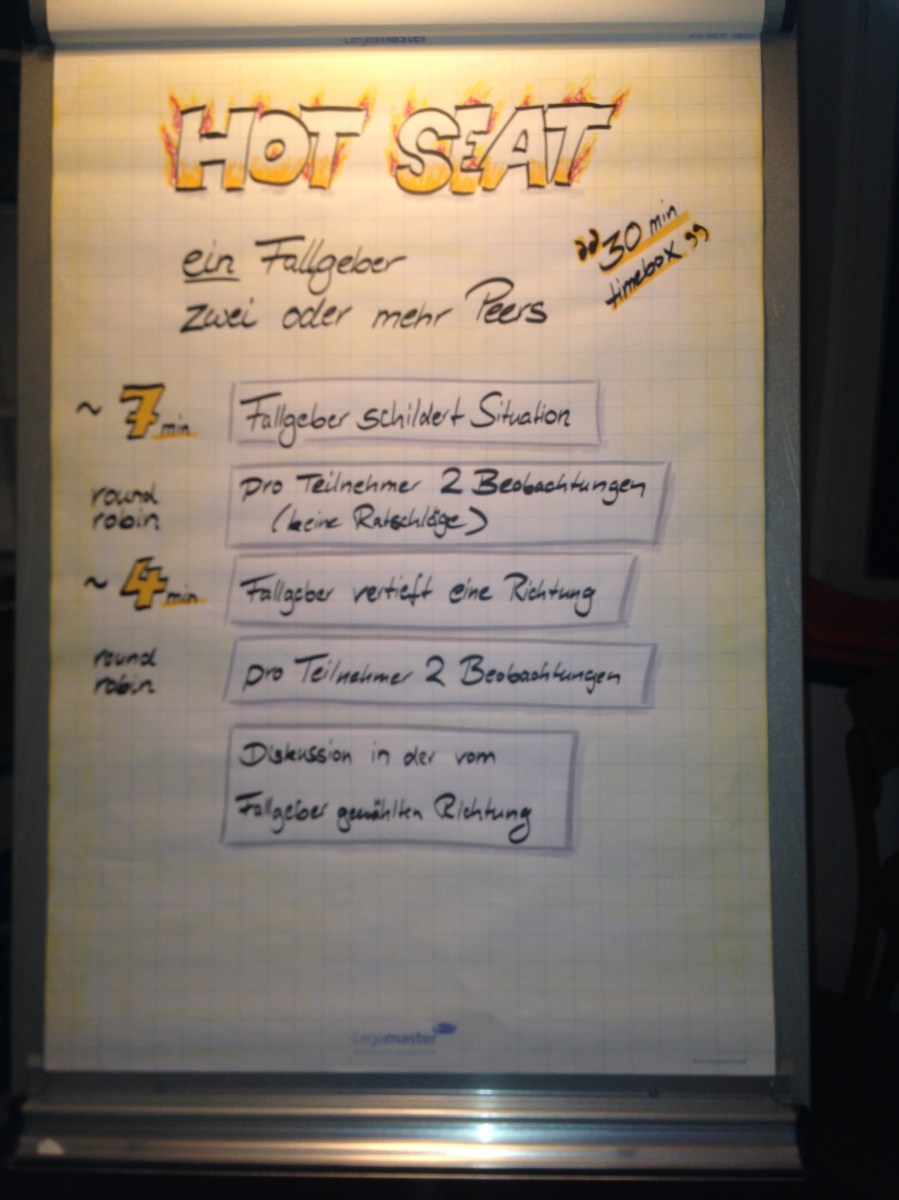 Legamaster
HOT SEAT
ein Fallgeber
zwei oder mehr Peers
"30 min
timebox"
~ 7 min
Fallgeber schildert Situation
round
robin
pro Teilnehmer 2 Beobachtungen
(keine Ratschläge)
~ 4 min
Fallgeber vertieft eine Richtung
round
robin
pro Teilnehmer 2 Beobachtungen
Diskussion in der vom
Fallgeber gewählten Richtung
Legamaster